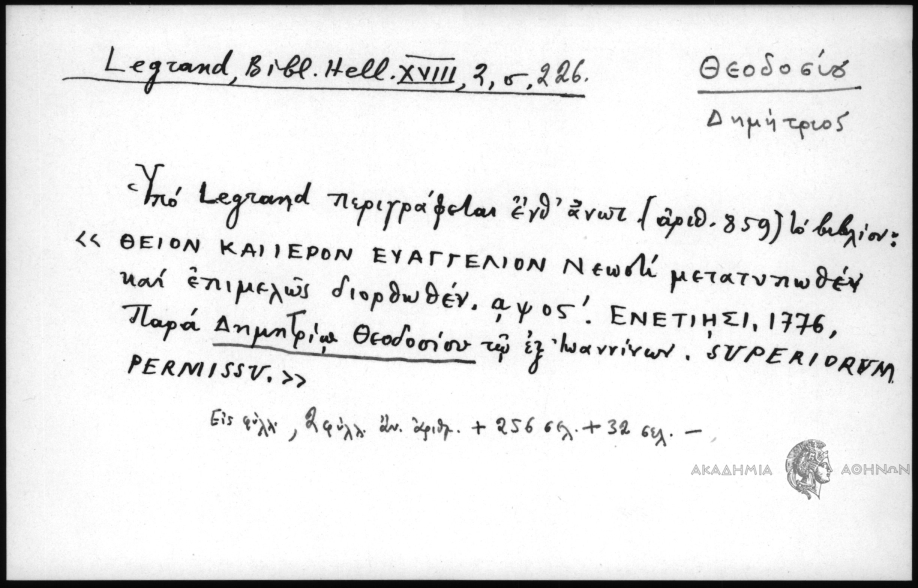 Legrand, Bibl. Hell. XVIII, 2, σ, 226.
Θεοδοσίου
Δημήτριος
Ὑπό Legrand περιγράφεται ἔνθ' ἄνωτ. (ἀριθ. 859) τό βιβλίον:
<< ΘΕΙΟΝ ΚΑΙ ΙΕΡΟΝ ΕΥΑΓΓΕΛΙΟΝ Νεωστί μετατυπωθέν
καί ἐπιμελῶς διορθωθέν. αψος'. ΕΝΕΤΙῌΣΙ, 1776,
Παρά Δημητρίῳ Θεοδοσίου τῷ ἐξ Ἰωαννίνων. SUPERIORUM
PERMISSU. >>
Εἰς φύλλ., 2 φύλλ. ἄν. ἀριθμ. + 256 σελ. + 32 σελ. —
ΑΚΑΔΗΜΙΑ ΑΘΗΝΩΝ